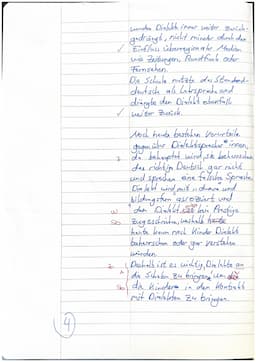 wurden Dialekte immer weiter zurück-
gedrängt, nicht minder durch den
✓ Einfluss überregionaler Medien
wie Zeitungen, Rundfunk oder
Fernsehen.
Die Schule nutzte das Standard-
deutsch als Lehrsprache und
drängte den Dialekt ebenfalls
✓ weiter zurück.
Noch heute bestehen Vorurteile
gegenüber Dialektsprecher*innen,
da behauptet wird, sie beherrschen
das richtige Deutsch gar nicht
und sprechen eine falsche Sprache.
Dialekt wird mit
Bildungsfern assoziiert und
dem Dialekt kein Prestige
Sb zugeschrieben, weshalb
heute kaum noch Kinder Dialekt
beherrschen oder gar verstehen
würden.
Deshalb ist es wichtig, Dialekte an
die Schulen zu bringen, um
Sb die Kinder in den Kontakt
mit Dialekten zu bringen.
4